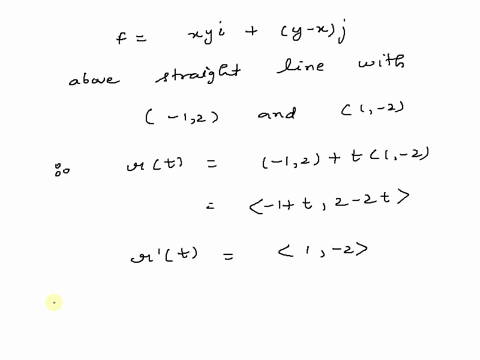 F = xyi + (y-x)j
above straight line with
(-1,2) and (1,-2)
∴ r(t) = (-1,2) + t(1,-2)
= <-1+t, 2-2t>
r'(t) = <1,-2>